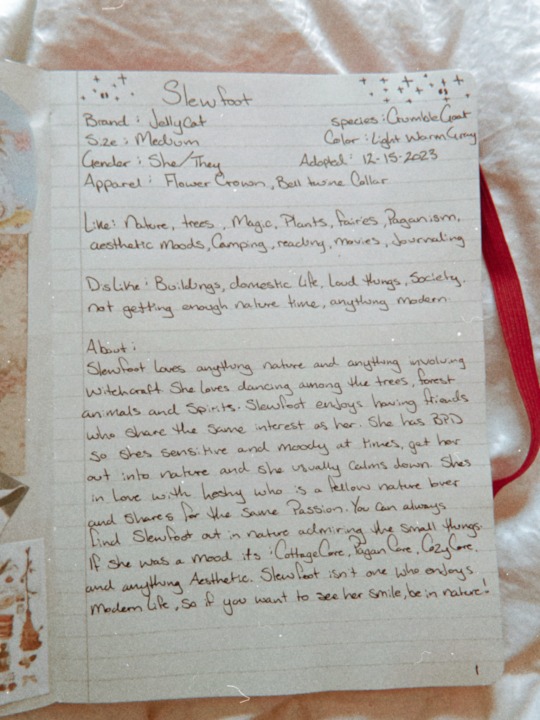 Slewfoot
Brand: JellyCat species: Crumble Goat
Size: Medium Color: Light Warm Gray
Gender: She/They Adopted: 12-15-2023
Apparel: Flower Crown, Bell twine Collar
Like: Nature, trees, Magic, Plants, fairies, Paganism,
aesthetic moods, Camping, reading, movies, Journaling
Dislike: Buildings, domestic life, Loud things, Society,
not getting enough nature time, anything modern.
About:
Slewfoot loves anything nature and anything involving
Witchcraft She Loves dancing among the trees, forest
animals and Spirits. Slewfoot enjoys having friends
who share the same interest as her. She has BPD
so shes sensitive and moody at times, get her
out into nature and she usually calms down. Shes
in love with heshy who is a fellow nature lover
and shares for the same Passion. You can always
find Slewfoot out in nature admiring the small things.
If she was a mood its: CottageCore, Pagan Core, CozyCore,
and anything Aesthetic. Slewfoot isn't one who enjoys
modern life, so if you want to see her smile, be in nature!
1